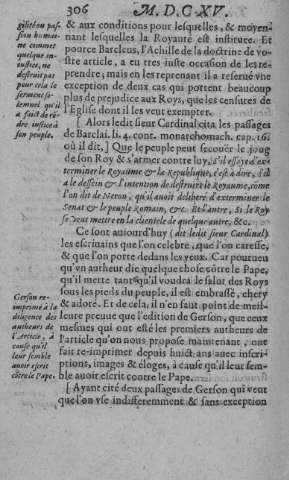 306 M. D. C XV.
& aux conditions pour lesquelles, & moyen-
nant lesquelles la Royauté est instituee. Et
pource Barcleus, l'Achille de la doctrine de vo-
stre article, a eu tres iuste occasion de les re-
prendre; mais en les reprenant il a reserué vne
exception de deux cas qui portent beaucoup
plus de prejudice aux Roys, que les censures de
l'Eglise dont il les veut exempter.
[Alors ledit sieur Cardinal cita les passages
de Barclai. li. 4. cont. monarchomach. cap. 16.
où il dit,] Que le peuple peut secoüer le joug
de son Roy & s'armer contre luy, s'il essaye d'ex-
terminer le Royaume & la Republique, c'est à dire, s'il
a le dessein & l'intention de destruire le Royaume, côme
l'on dit de Neron, qu'il auoit deliberé d'exterminer le
Senat & le peuple Romain, &c. Et l'autre, Si le Roy
se veut mettre en la clientele de quelque autre, &c.
Ce sont aujourd'huy (dit ledit sieur Cardinal)
les escriuains que l'on celebre, que l'on caresse,
& que l'on porte dedans les yeux. Car pourueu
qu'vn autheur die quelque chose côtre le Pape,
qu'il mette tant qu'il voudra le salut des Roys
sous les pieds du peuple, il est embrassé, chery
& adoré. Et de cela, il n'en faut point de meil-
leure preuue que l'edition de Gerson, que ceux
mesmes qui ont esté les premiers autheurs de
l'article qu'on nous propose maintenant, ont
fait re-imprimer depuis huict ans auec inscri-
ptions, images & éloges, à cause qu'il leur sem-
ble auoir escrit contre le Pape.
[Ayant cité deux passages de Gerson qui veut
que l'on vse indifferemment & sans exception
sion humai-
ne commet
quelque in-
iustice, ne
destruit pas
pour cela le
serment so-
lemnel qu'il
a fait de rê-
dre iustice à
son peuple.
Gerson re-
imprimé à la
diligence des
autheurs de
l'Article, à
cause qu'il
leur semble
auoir escrit
côtre le Pape.